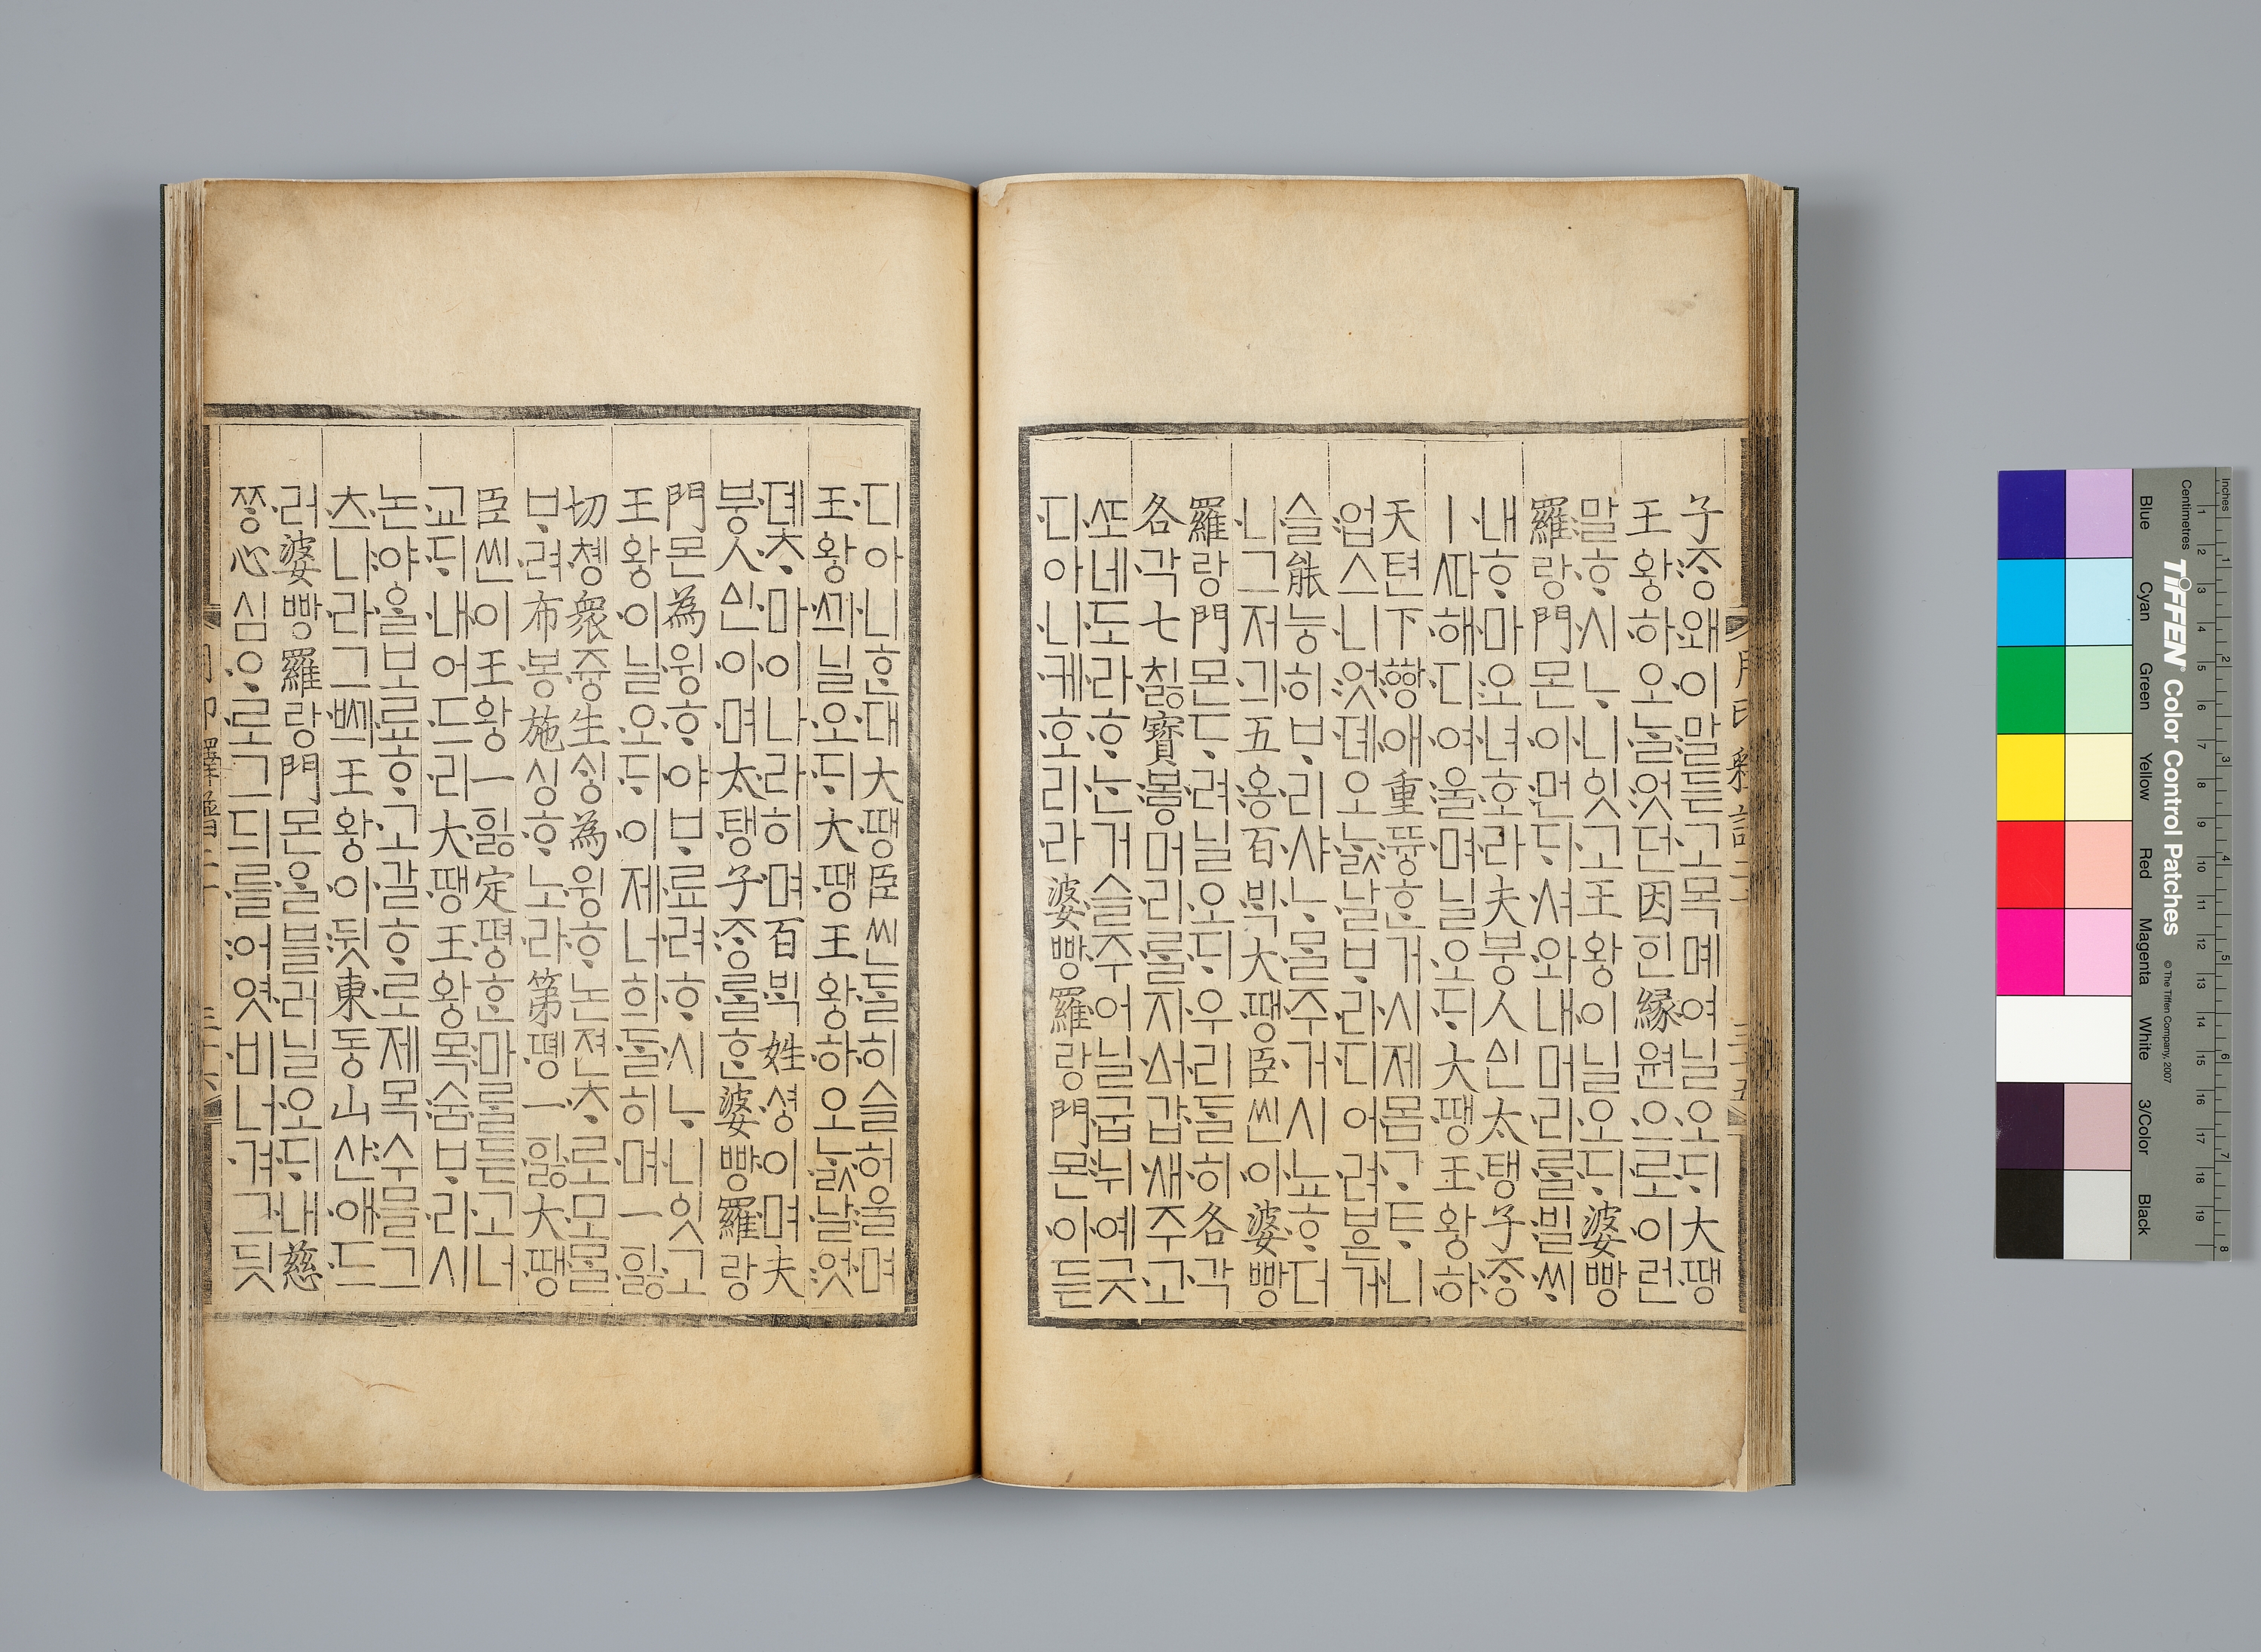 子ᄌᆞᆼ왜이말듣고목몌여닐오ᄃᆡ大땡
王왕하오ᄂᆞᆯ엇던因ᅙᅵᆫ緣원으로이런
말ᄒᆞ시ᄂᆞ니잇고王왕이닐오ᄃᆡ婆빵
羅랑門몬이먼ᄃᆡ셔와내머리ᄅᆞᆯ빌ᄊᆡ
내ᄒᆞ마오녀호라夫붕人ᅀᅵᆫ太탱子ᄌᆞᆼ
ㅣᄯᅡ해디여울며닐오ᄃᆡ大땡王왕하
天텬下ᅘᅡᆼ애重뜡ᄒᆞᆫ거시제몸ᄀᆞᄐᆞ니
업스니엇뎨오ᄂᆞᆳ날ᄇᆞ리디어려ᄫᅳᆫ거
슬能능히ᄇᆞ리샤ᄂᆞᄆᆞᆯ주거시뇨ᄒᆞ더
니그저긔五옹百ᄇᆡᆨ大땡臣씬이婆빵
羅랑門몬ᄃᆞ려닐오ᄃᆡ우리ᄃᆞᆯ히各각
各각七치ᇙ寶보ᇢ머리ᄅᆞᆯ지ᅀᅥ갑새주고
ᄯᅩ네도라ᄒᆞ논거슬주어닐굽뉘예긋
디아니케호리라婆빵羅랑門몬이듣
디아니ᄒᆞᆫ대大땡臣씬ᄃᆞᆯ히슬허울며
王왕ᄭᅴ닐오ᄃᆡ大땡王왕하오ᄂᆞᆳ날엇
뎨ᄎᆞ마이나라히며百ᄇᆡᆨ姓셩이며夫
붕人ᅀᅵᆫ이며太탱子ᄌᆞᆼᄅᆞᆯᄒᆞᆫ婆빵羅랑
門몬爲윙ᄒᆞ야ᄇᆞ료려ᄒᆞ시ᄂᆞ니잇고
王왕이닐오ᄃᆡ이제너희ᄃᆞᆯ히며一ᅙᅵᇙ
切촁衆즁生ᄉᆡᆼ爲윙ᄒᆞ논젼ᄎᆞ로모ᄆᆞᆯ
ᄇᆞ려布봉施싱ᄒᆞ노라第똉一ᅙᅵᇙ大땡
臣씬이王왕一ᅙᅵᇙ定뗭ᄒᆞᆫ마ᄅᆞᆯ듣고너
교ᄃᆡ내어드리大땡王왕목숨ᄇᆞ리시
논야ᅌᆞᆯ보료ᄒᆞ고갈ᄒᆞ로제목수믈그
츠니라그ᄢᅴ王왕이뒷東동山산애드
러婆빵羅랑門몬ᄋᆞᆯ블러닐오ᄃᆡ내慈
ᄍᆞᆼ心심ᄋᆞ로그듸를어엿비너겨그딋
Inches
Centimetres
TIFFEN Color Control Patches
© The Tiffen Company, 2007
Blue
Cyan
Green
Yellow
Red
Magenta
White
3/Color
Black